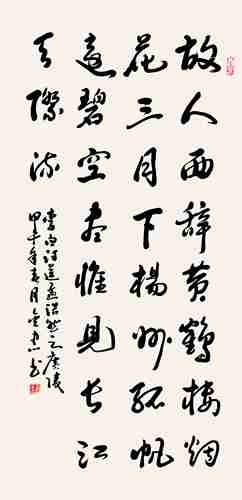 故人西辞黄鶴楼烟
花三月下楊州孤帆
遠碧空尽惟見长江
天际流
李白诗送孟浩然之廣陵
甲午年春月
书